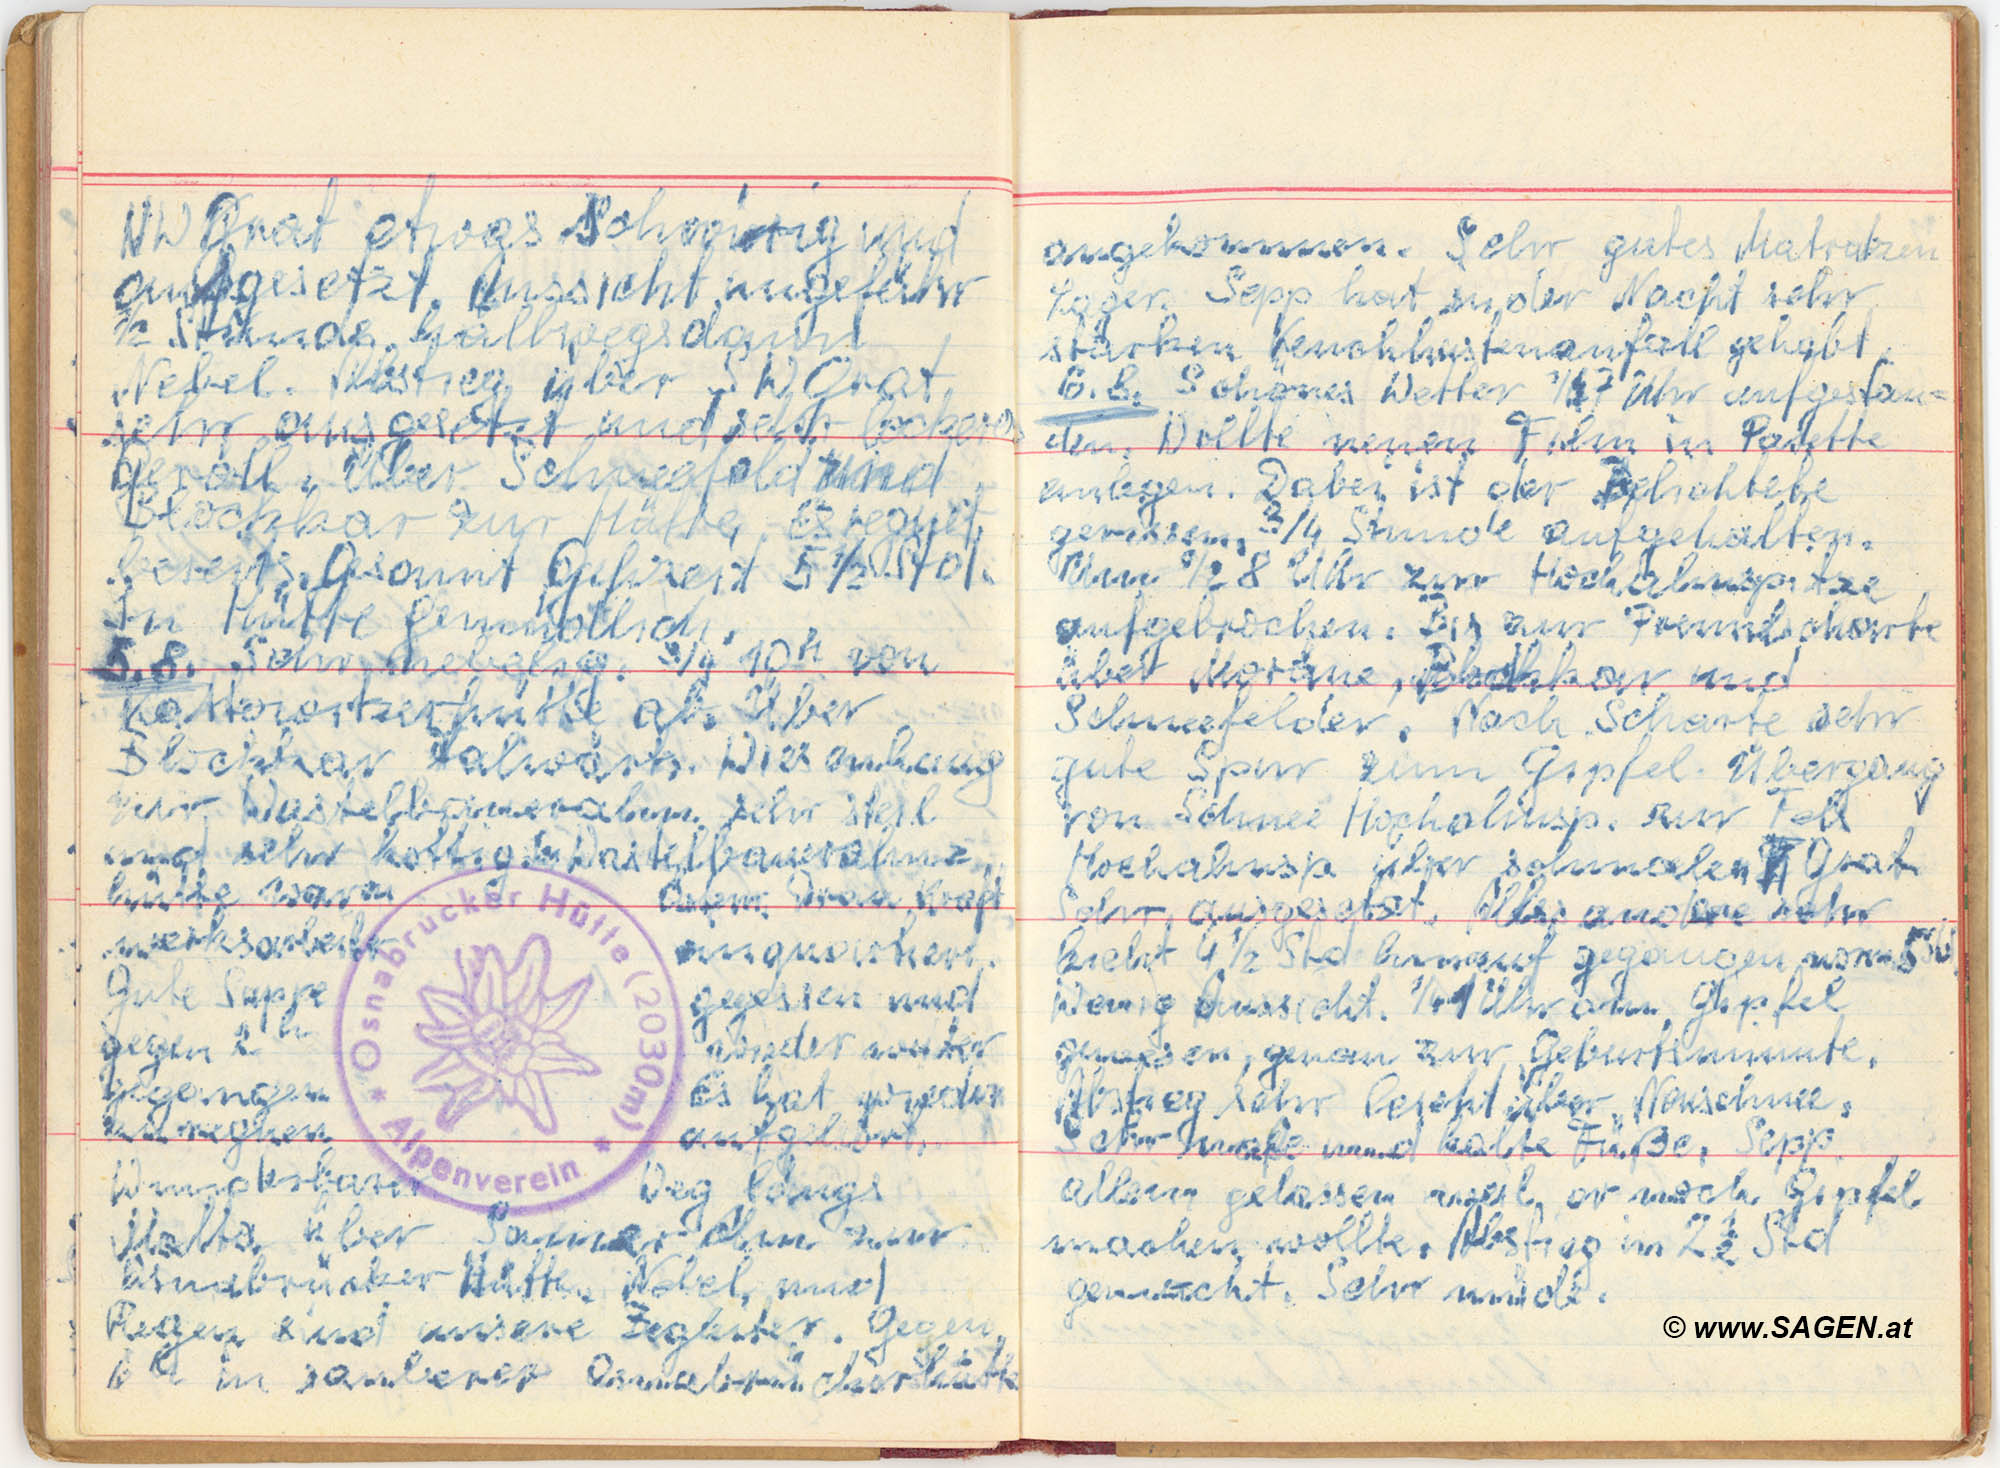 NW Grat etwas schwierig und
ausgesetzt. Aussicht ungefähr
1/2 Stunde halbwegs dann
Nebel. Abstieg über SW Grat,
sehr ausgesetzt und sehr lockeres
Geröll. Über Schneefeld und
Blockkar zur Hütte. Es regnet
bereits. Gesamt Gehzeit 5 1/2 Std.
In Hütte gemütlich.
5.8. Sehr nebelig. 3/4 10h von
Kattowitzerhütte ab. Über
Blockkar talwärts.
zur Wastelbaueralm sehr steil
und sehr kottig. In Wastelbaueralmz
hütte waren Kraft
werksarbeiter einquartiert.
Gute Suppe gegessen und
gegen h wieder weiter
gegangen Es hat wieder
zu regnen aufgehört.
Wunderbarer Weg längs
Malta über Samer Alm zur
Osnabrücker Hütte. Nebel und
Regen sind unsere Begleiter. Gegen
h in sauberer Osnabrückerhütte
* Osnabrücker Hütte (2030m) *
Alpenverein
angekommen. Sehr gutes Matratzen
Lager. Sepp hat in der Nacht sehr
starken Keuchhustenanfall gehabt.
6.8. Schönes Wetter Uhr aufgestan=
den. Wollte neuen Film in Patette
einlegen. Dabei ist der
gerissen. 3/4 Stunde aufgehalten.
Um 1/2 8 Uhr zur Hochalmspitze
aufgebrochen. Bis zur Preimlscharte
über Moräne, Blockkar und
Schneefelder. Nach Scharte sehr
gute Spur zum Gipfel. Übergang
von Schnee Hochalmsp. zur Fels
Hochalmsp über schmalen Grat
Sehr ausgesetzt. Alles andere sehr
leicht 4 1/2 Std hinauf gegangen
Wenig Aussicht. Uhr am Gipfel
gewesen, genau zur Geburtsminute.
Abstieg sehr leicht über Neuschnee.
Sehr nasse und kalte Füße. Sepp
allein gelassen weil er noch Gipfel
machen wollte. Abstieg in 2 1/2 Std
gemacht. Sehr müde.
© www.SAGEN.at